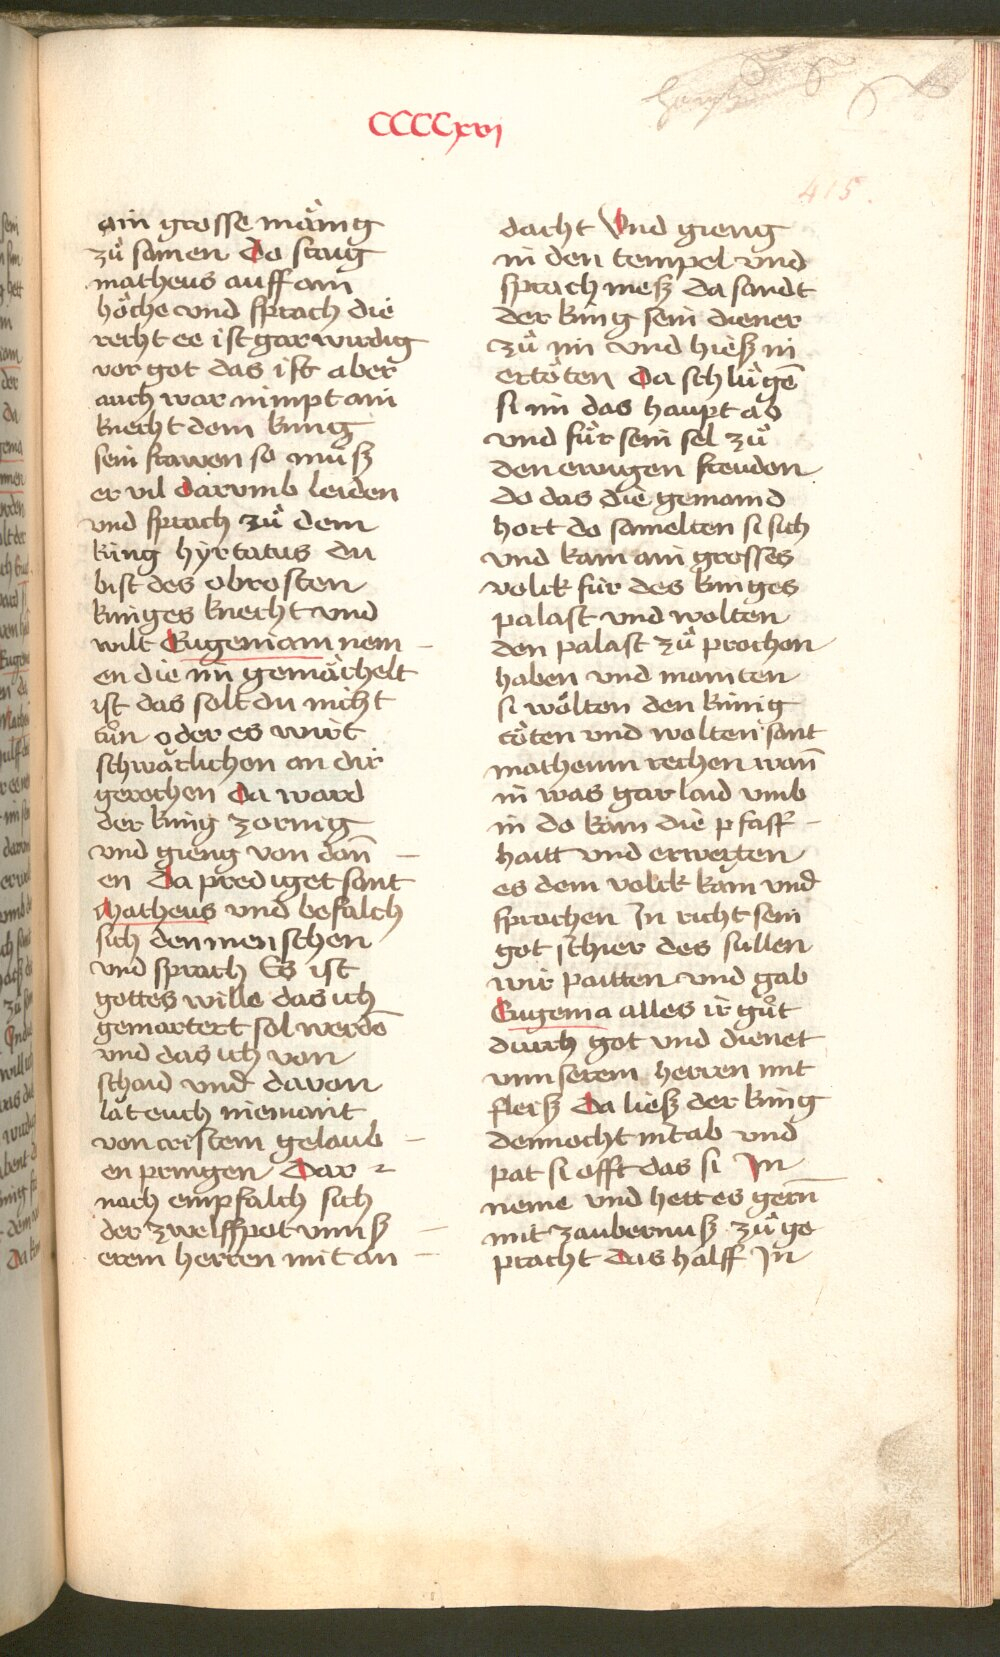 CCCCxvj
415.
ain grosse mäing
zů samen Da staig
matheus auff ain
höche vnd sprach die
recht ee ist gar wirdig
vor got das ist aber
auch war nimpt ain
knecht dem king
sein frawen so můsz
er vil darumb leiden
vnd sprach zů dem
king hyrtatus du
bist des obrosten
kinges knecht vnd
wilt Eugeniam nem
en die im gemächelt
ist das solt du nicht
tůn oder es wirt
schwärlichen an dir
gerochen Da ward
der king zornig
vnd gieng von dan̄
en Da prediget sant
Matheus vnd befalch
sich den menschen
vnd sprach Es ist
gottes wille das ich
gemartert sol werdē
vnd das ich von
schaid vnd davon
lät euch niemant
von cristem gelaub
en pringen Dar
nach empfalch sich
der zwelffpot vnnsz
erem herren mit an
dacht Vnd gieng
in den tempel vnd
sprach mesz da sandt
der king sein diener
zů im vnd hiesz in
ertöten Da schlůgē
si im das haupt ab
vnd fůr sein sel zů
den ewigen freuden
do das die gemaind
hort do samelten si sich
vnd kam ain grosses
volck für des kinges
palast vnd wolten
den palast zů prochen
haben vnd mainten
si wölten den kinig
töten vnd wolten sant
matheum rechen wan̄
in was gar laid vmb
in do kam die pfaff
haitt vnd erwerten
es dem volck kam vnd
sprachen In richt sein
got schier des sullen
wir paitten vnd gab
Eugenia alles ir gůt
durch got vnd dienet
vnnserem herren mit
fleisz Da liesz der king
dennocht nit ab vnd
pat si offt das si In
neme vnd hett es gern̄
mit zaubernusz zů ge
pracht das halff In